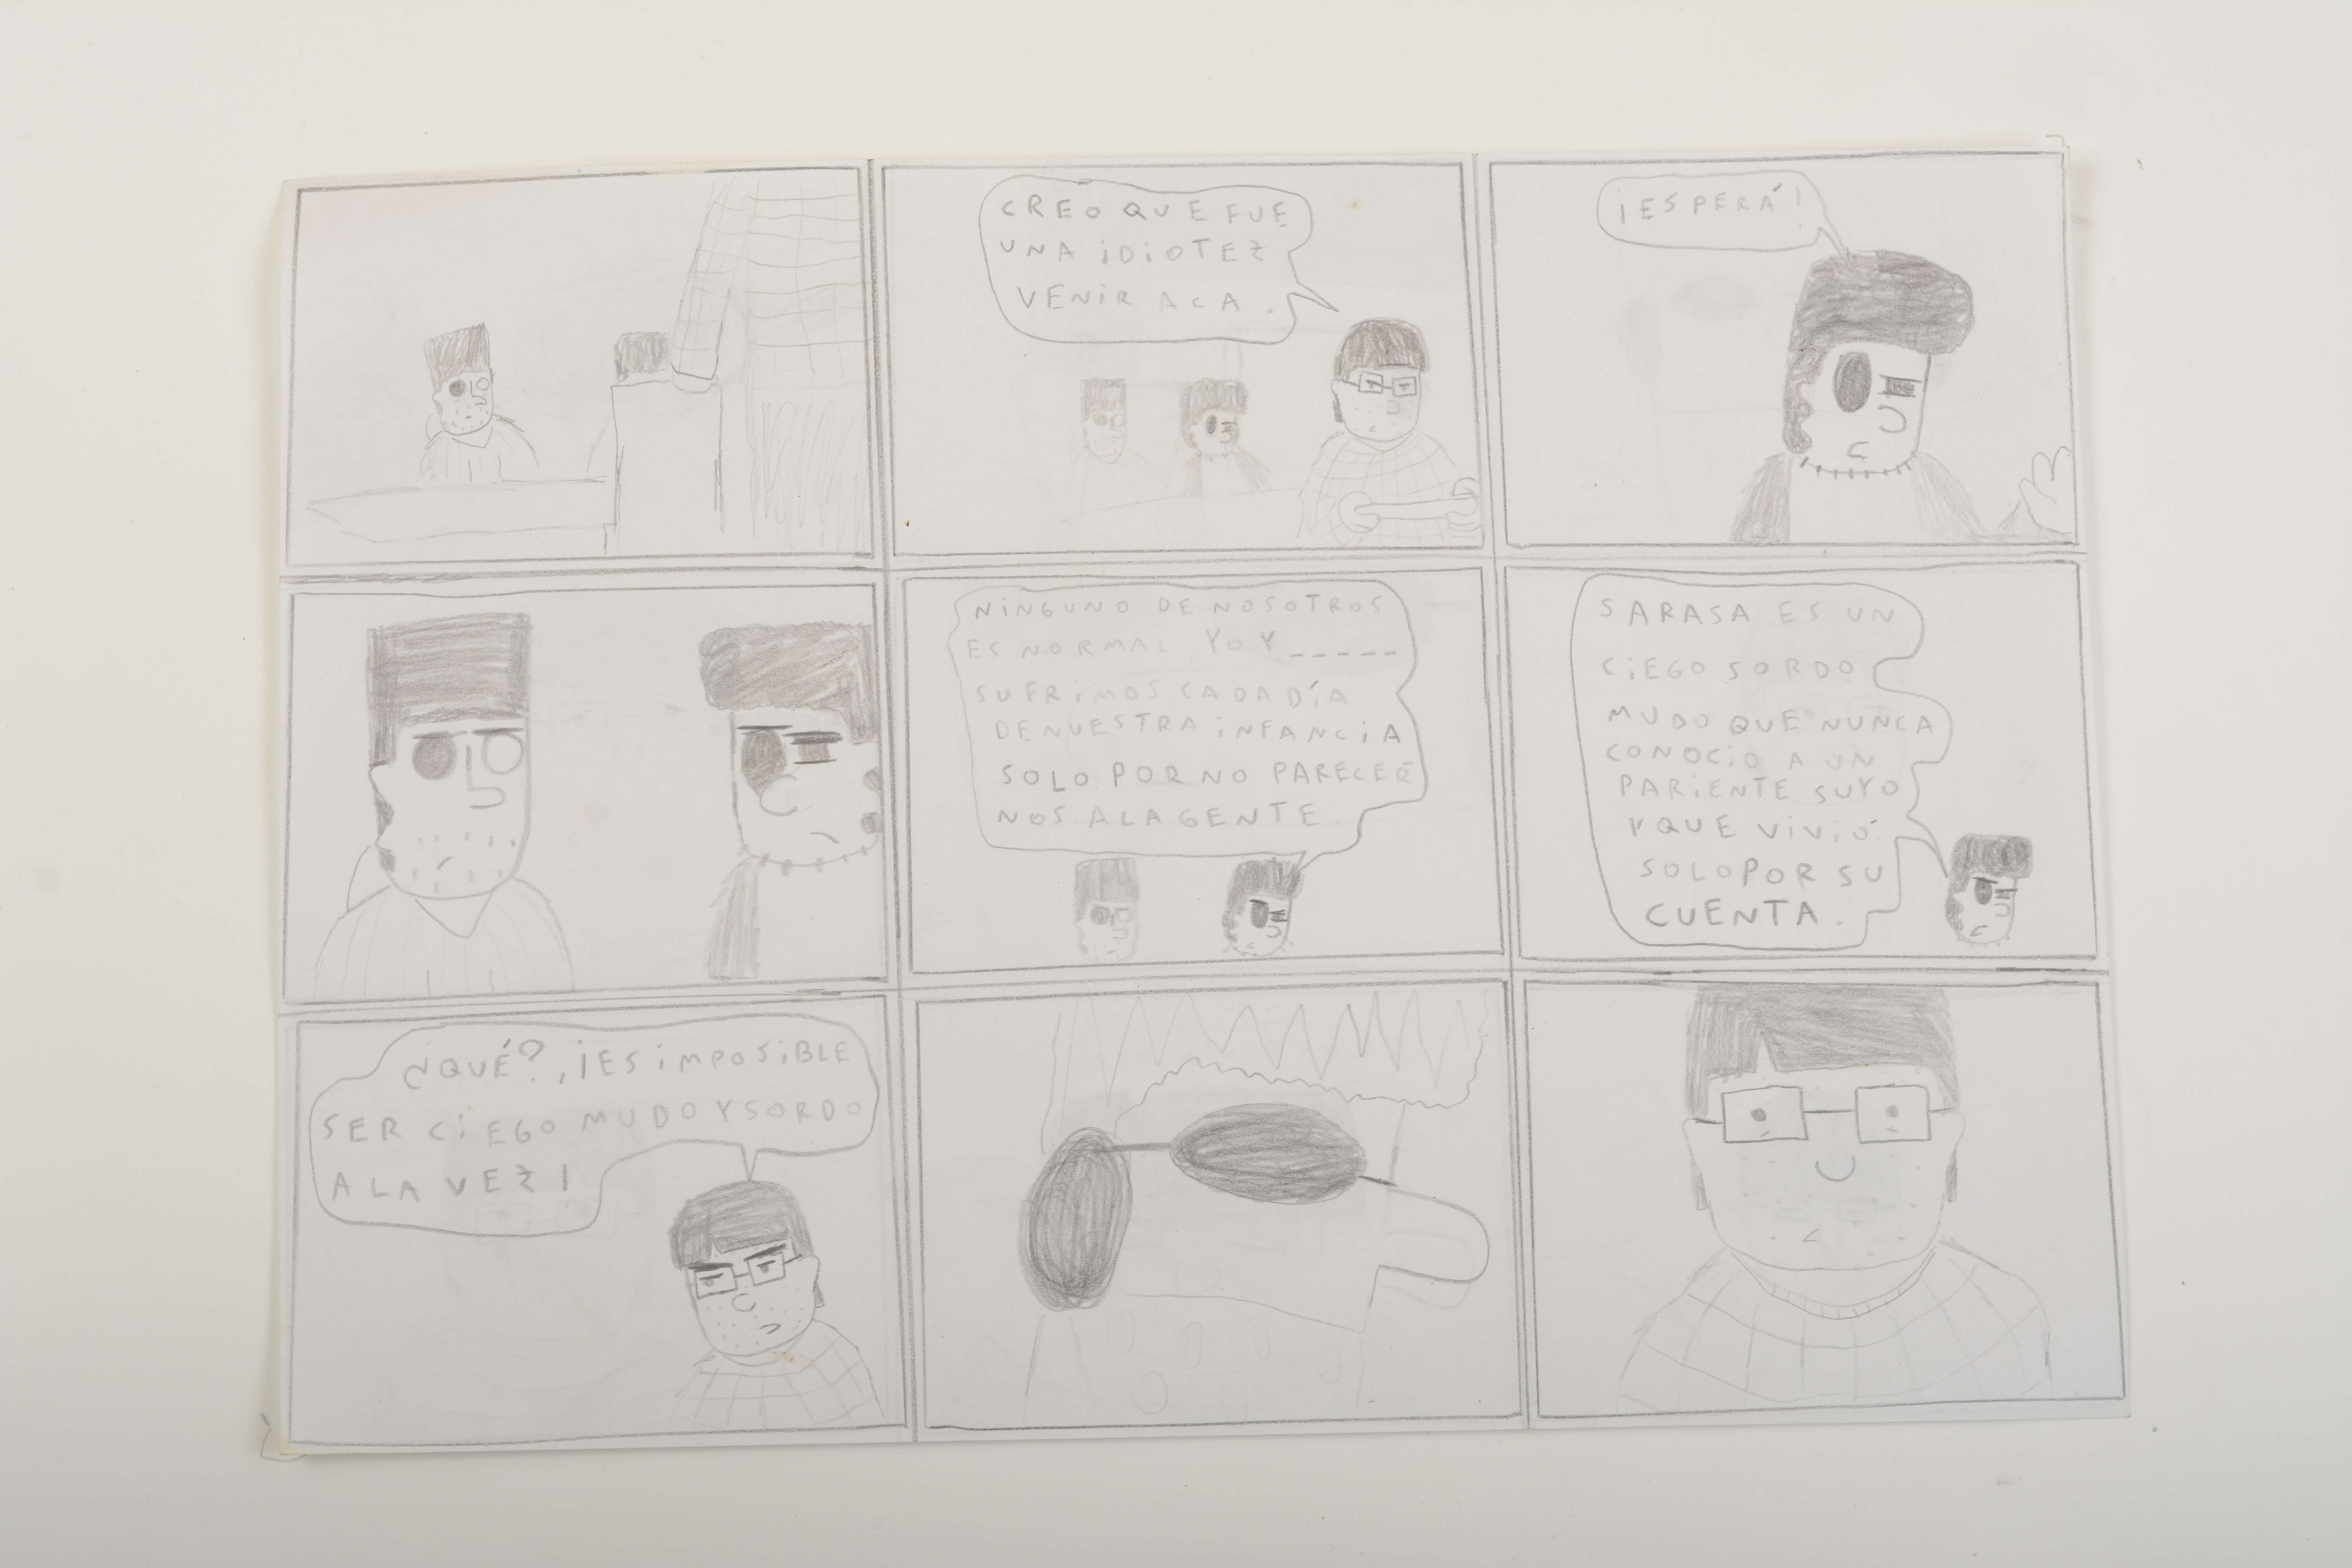 CREO QUE FUE
UNA IDIOTEZ
VENIR ACA.
¡ESPERÁ!
NINGUNO DE NOSOTROS
ES NORMAL, YO Y _ _ _ _ _
SUFRIMOS CADA DÍA
DE NUESTRA INFANCIA
SOLO POR NO PARECER
NOS A LA GENTE.
SARASA ES UN
CIEGO SORDO
MUDO QUE NUNCA
CONOCIO A UN
PARIENTE SUYO
Y QUE VIVIÓ
SOLO POR SU
CUENTA.
¿QUÉ?, ¡ES IMPOSIBLE
SER CIEGO MUDO Y SORDO
A LA VEZ!